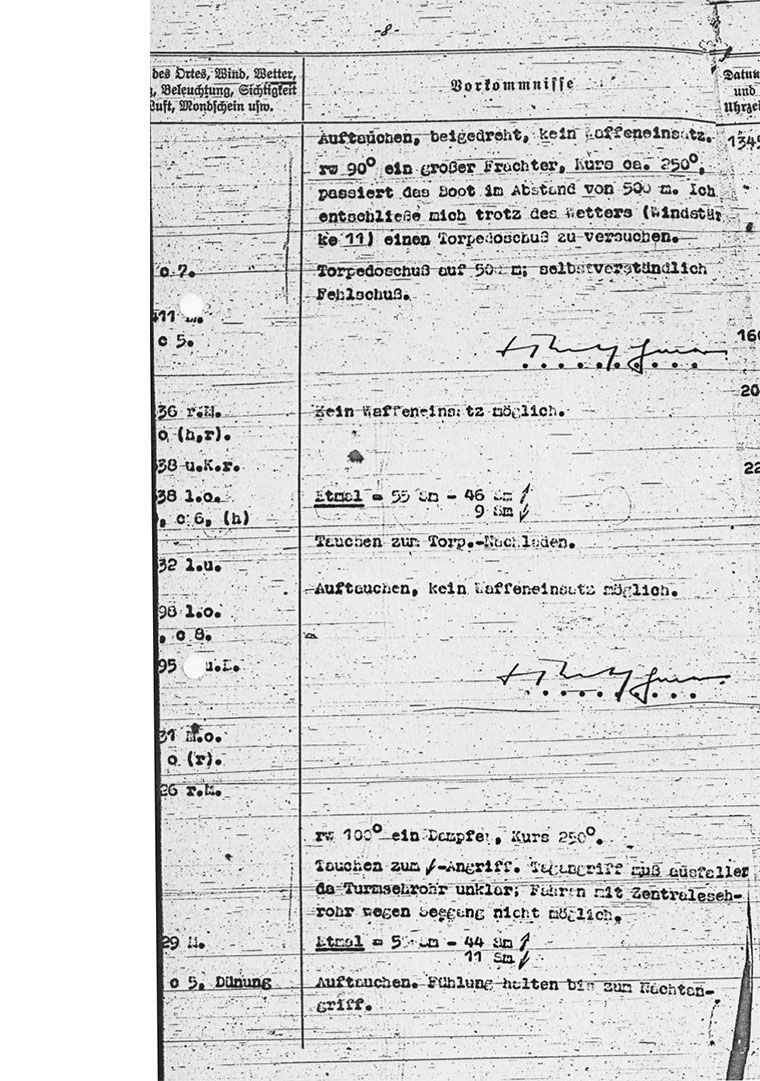 -8-
des Ortes, Wind, Wetter,
Beleuchtung, Sichtigkeit
Luft, Mondschein usw.
Vorkommnisse
Datum
und
Uhrzei
Auftauchen, beigedreht, kein Waffeneinsatz.
1345
rw 90° ein großer Frachter, Kurs ca. 250°,
passiert das Boot im Abstand von 500 m. Ich
entschließe mich trotz des Wetters (Windstär
ke 11) einen Torpedoschuß zu versuchen.
c 7.
Torpedoschuß auf 500 m; selbstverständlich
Fehlschuß.
c 5.
160
20
36 r.M.
Kein Waffeneinsatz möglich.
o (h,r).
38 u.K.r.
22
38 l.o.
Etmal = 55 Sm - 46 Sm
9 Sm
, c 6, (h)
Tauchen zum Torp.-Nachladen.
32 l.u.
Auftauchen, kein Waffeneinsatz möglich.
98 l.o.
, c 8.
95
31 M.o.
o (r).
26 r.M.
rw 100° ein Dampfer, Kurs 250°.
Tauchen zum -Angriff. Tagangriff muß ausfallen
da Turmsehrohr unklar; Fahren mit Zentraleseh-
rohr wegen Seegang nicht möglich.
29 M.
Etmal = Sm - 44 Sm
11 Sm
c 5, Dünung
Auftauchen. Fühlung halten bis zum Nachtan-
griff.